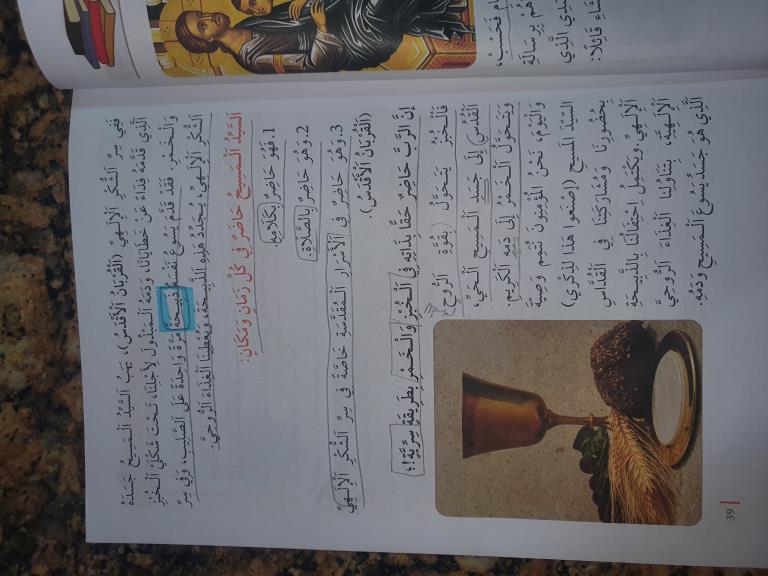 فَفِي سِرِّ الشُّكْرِ الْإِلَهِيِّ (الْقُرْبَانُ الْأَقْدَسُ)، يَهَبُ السَّيِّدُ الْمَسِيحُ جَسَدَهُ
الَّذِي قَدَّمَهُ فِدَاءً عَنْ خَطَايَانَا، وَدَمَهُ الْمَبْذُولَ لِأَجْلِنَا، تَحْتَ شَكْلَيِّ الْخُبْزِ
وَالْخَمْرِ. فَقَدْ قَدَّمَ يَسُوعُ نَفْسَهُ ذَبِيحَةً مَرَّةً وَاحِدَةً عَلَى الصَّلِيبِ، وَفِي سِرِّ
الشُّكْرِ الْإِلَهِيِّ، يُجَدِّدُ هَذِهِ الذَّبِيحَةَ، وَيُعْطِينَا الْغِذَاءَ الرُّوحِيَّ.
السَّيِّدُ الْمَسِيحُ حَاضِرٌ فِي كُلِّ زَمَانٍ وَمَكَانٍ:
1. فَهُوَ حَاضِرٌ بِكَلَامِهِ.
2. وَهُوَ حَاضِرٌ بِالصَّلَاةِ.
3. وَهُوَ حَاضِرٌ فِي الْأَسْرَارِ الْمُقَدَّسَةِ خَاصَّةً فِي سِرِّ الشُّكْرِ الْإِلَهِيِّ
(الْقُرْبَانُ الْأَقْدَسُ).
إِنَّ الرَّبَّ حَاضِرٌ حَقًّا بِذَاتِهِ فِي الْخُبْزِ وَالْخَمْرِ بِطَرِيقَةٍ سِرِّيَّةٍ!؛
فَالْخُبْزُ يَتَحَوَّلُ (بِقُوَّةِ الرُّوحِ
الْقُدُسِ) إِلَى جَسَدِ الْمَسِيحِ الْحَيِّ،
وَيَتَحَوَّلُ الْخَمْرُ إِلَى دَمِهِ الْكَرِيمِ.
وَالْيَوْمَ، نَحْنُ الْمُؤْمِنُونَ نُتَمِّمُ وَصِيَّةَ
السَّيِّدِ الْمَسِيحِ (اِصْنَعُوا هَذَا لِذِكْرِي)
بِحُضُورِنَا وَمُشَارَكَتِنَا فِي الْقُدَّاسِ
الْإِلَهِيِّ. وَيَكْتَمِلُ احْتِفَالُنَا بِالذَّبِيحَةِ
الْإِلَهِيَّةِ، بِتَنَاوُلِنَا الْغِذَاءَ الرُّوحِيَّ
الَّذِي هُوَ جَسَدُ يَسُوعَ الْمَسِيحِ وَدَمُهُ.
39